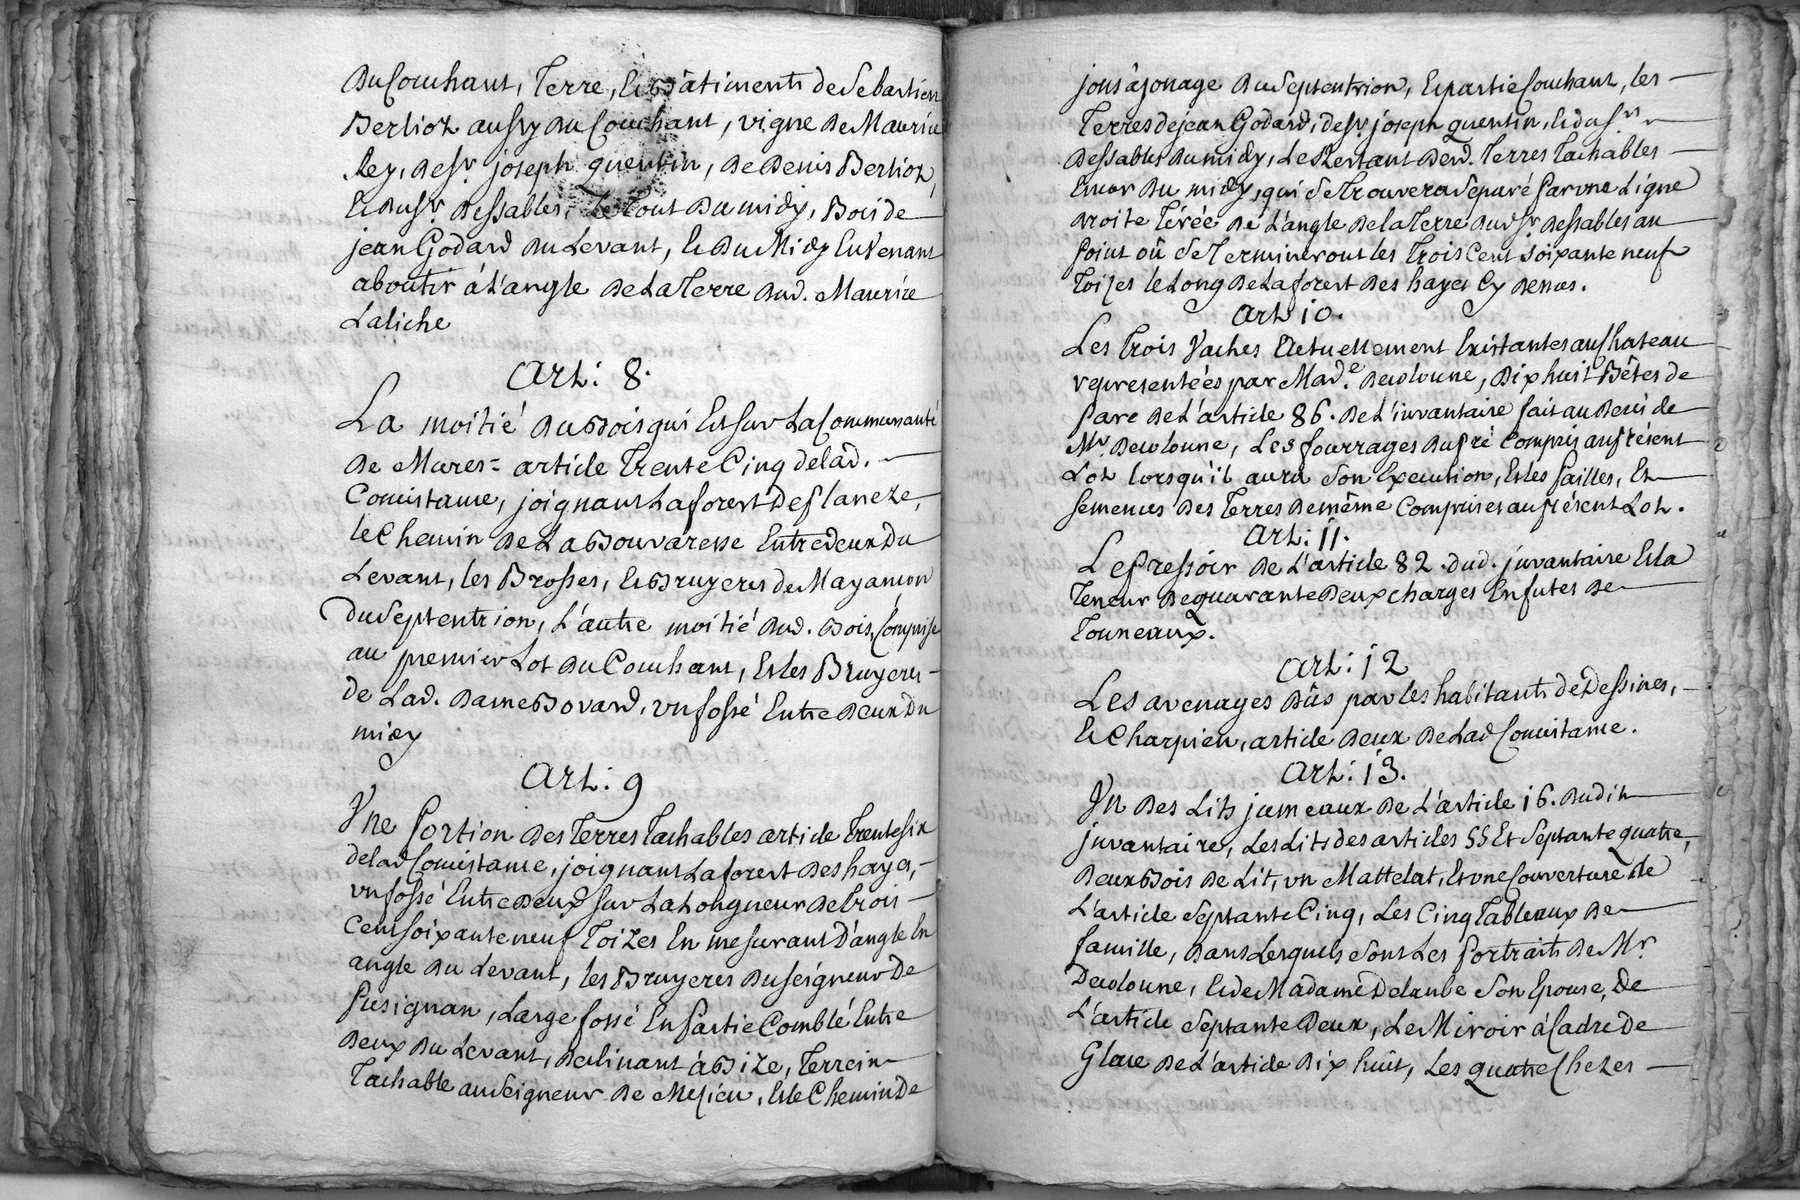 du Couchant, Terre, & Bâtiments de Sebastien
Berlioz aussy du Couchant, vigne de Maurice
Rey, de sr. joseph quentin, de Denis Berlioz,
& du sr. Dessables, le tout du midy, Bois de
jean Godard du Levant, & du Midy En venant
aboutir à L'angle de La Terre dud. Maurice
Laliche
Art: 8.
La moitié du Bois qui Est sur La Communauté
de Mures = article Trente Cinq de lad.
Consistance, joignant La forest de Planeze,
le Chemin de La Bouvaresse Entre deux du
Levant, les Brosses, & Bruyeres de Mayamion
du Septentrion, L'autre moitié dud. Bois, Comprise
au premier Lot du Couchant, & les Bruyeres
de Lad. Dame Bovard, un fossé Entre deux du
midy
Art: 9
Une portion des Terres Tachables article Trente six
de lad Consistance, joignant La forest des hayes,
un fossé Entre deux sur La Longueur de trois
Cent soixante neuf Toizes En mesurant D'angle En
angle du Levant, les Bruyeres du seigneur de
Pusignan, Large fossé En partie Comblé Entre
deux du Levant, declinant à Bize, Terrein
Tachable au Seigneur de Mezieu, & le Chemin de
jons à jonage du Septentrion, & partie Couchant, les
Terres de jean Godard, de sr. joseph quentin, & du sr.
Dessables du midy, Le Restant desd. Terres Tachables
Encor du midy, qui se trouvera separé par une Ligne
droite tirée de L'angle de la Terre dud sr. Dessables au
point où se Termineront les Trois Cent soixante neuf
Toizes le Long de La forest des hayes Cy dessus.
Art: 10.
Les Trois Vaches Actuellement Existantes au Chateau
representées par Made. Deuloune, dix huit Bêtes de
parc de L'article 86. de L'invantaire fait au Decès de
Mr. Deuloune, Les fourrages du pré Compris au présent
Lot lorsqu'il aura son Execution, & les pailles, Et
semences des Terres de même Comprises au présent Lot.
Art: 11.
Le pressoir de L'article 82. dud. juvantaire & la
Teneur de quarante deux charges En futes de
Tonneaux.
Art: 12
Les avenages dûs par les habitants de Dessines,
& Charpieu, article deux de Lad Consistance.
Art: 13.
Un des Lits jumeaux de L'article 16. dudit
juvantaire, Les Lits des articles 55 Et Septante quatre,
deux Bois de Lit, un Mattelat, Et une Couverture de
L'article Septante Cinq, Les Cinq Tableaux de
famille, dans Lesquels sont Les portraits de Mr.
Deuloune, & de Madame Delaube son Epouse, de
L'article Septante deux, Le Miroir à Cadre de
Glace de L'article dix huit, Les quatre Chezes